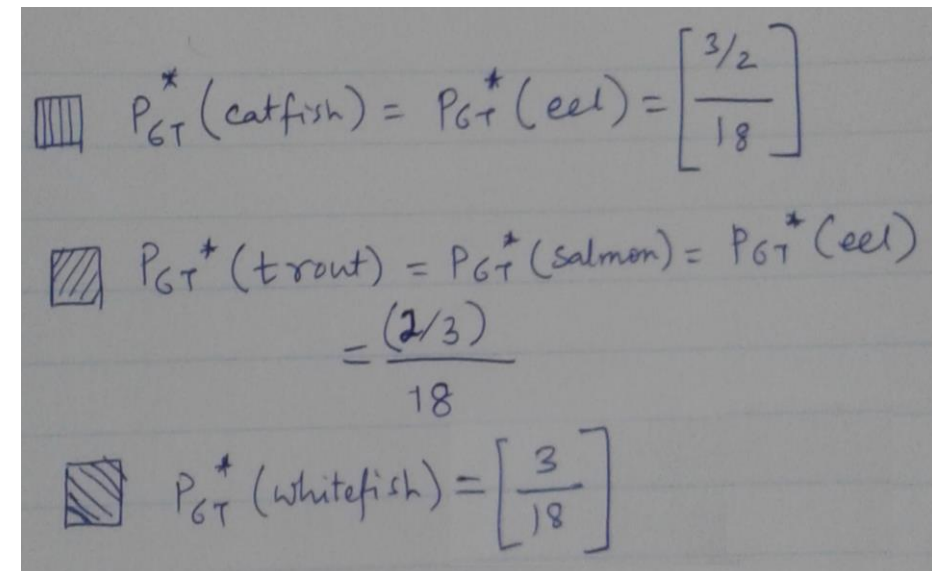 P*GT (catfish) = P*GT (eel) = [3/2 / 18]
PGT* (trout) = P*GT (salmon) = PGT* (eel)
= (2/3) / 18
P*GT (whitefish) = [3 / 18]